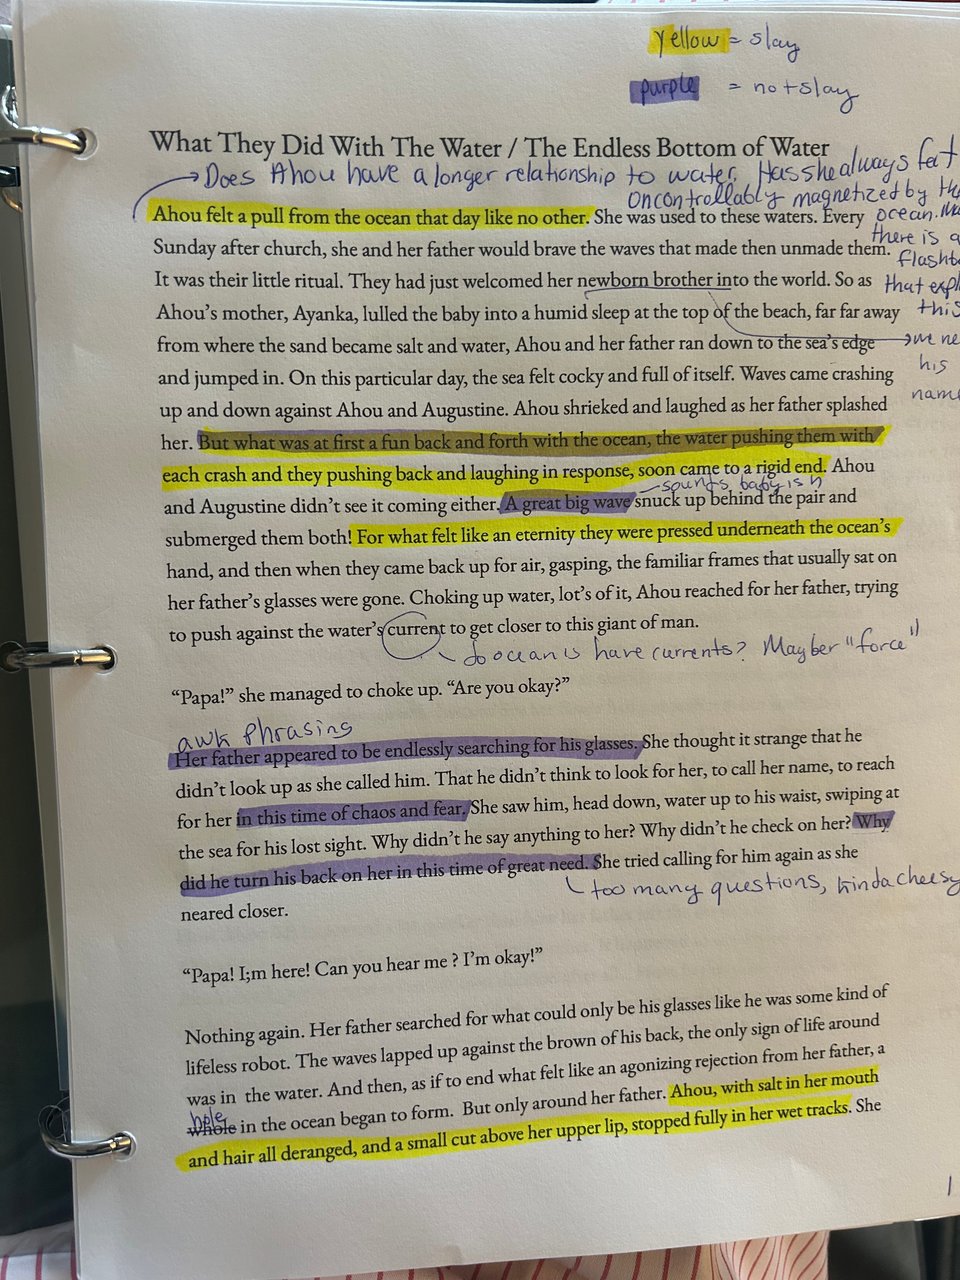 yellow = slay
purple = not slay
What They Did With The Water / The Endless Bottom of Water
Does Ahou have a longer relationship to water. Has she always felt
uncontrollably magnetized by the
ocean.
there is a
that
this
Ahou felt a pull from the ocean that day like no other. She was used to these waters. Every
Sunday after church, she and her father would brave the waves that made then unmade them.
It was their little ritual. They had just welcomed her newborn brother into the world. So as
Ahou's mother, Ayanka, lulled the baby into a humid sleep at the top of the beach, far far away
from where the sand became salt and water, Ahou and her father ran down to the sea's edge
his
and jumped in. On this particular day, the sea felt cocky and full of itself. Waves came crashing
name
up and down against Ahou and Augustine. Ahou shrieked and laughed as her father splashed
her. But what was at first a fun back and forth with the ocean, the water pushing them with
each crash and they pushing back and laughing in response, soon came to a rigid end. Ahou
sounds babyish
and Augustine didn't see it coming either. A great big wave snuck up behind the pair and
submerged them both! For what felt like an eternity they were pressed underneath the ocean's
hand, and then when they came back up for air, gasping, the familiar frames that usually sat on
her father's glasses were gone. Choking up water, lot's of it, Ahou reached for her father, trying
to push against the water's current to get closer to this giant of man.
do oceans have currents? Mayber "force"
“Papa!” she managed to choke up. “Are you okay?”
awk phrasing
Her father appeared to be endlessly searching for his glasses. She thought it strange that he
didn't look up as she called him. That he didn't think to look for her, to call her name, to reach
for her in this time of chaos and fear. She saw him, head down, water up to his waist, swiping at
the sea for his lost sight. Why didn't he say anything to her? Why didn't he check on her? Why
did he turn his back on her in this time of great need. She tried calling for him again as she
too many questions, kinda cheesy
neared closer.
“Papa! I;m here! Can you hear me ? I'm okay!”
Nothing again. Her father searched for what could only be his glasses like he was some kind of
lifeless robot. The waves lapped up against the brown of his back, the only sign of life around
was in the water. And then, as if to end what felt like an agonizing rejection from her father, a
hole
whole in the ocean began to form. But only around her father. Ahou, with salt in her mouth
and hair all deranged, and a small cut above her upper lip, stopped fully in her wet tracks. She
1